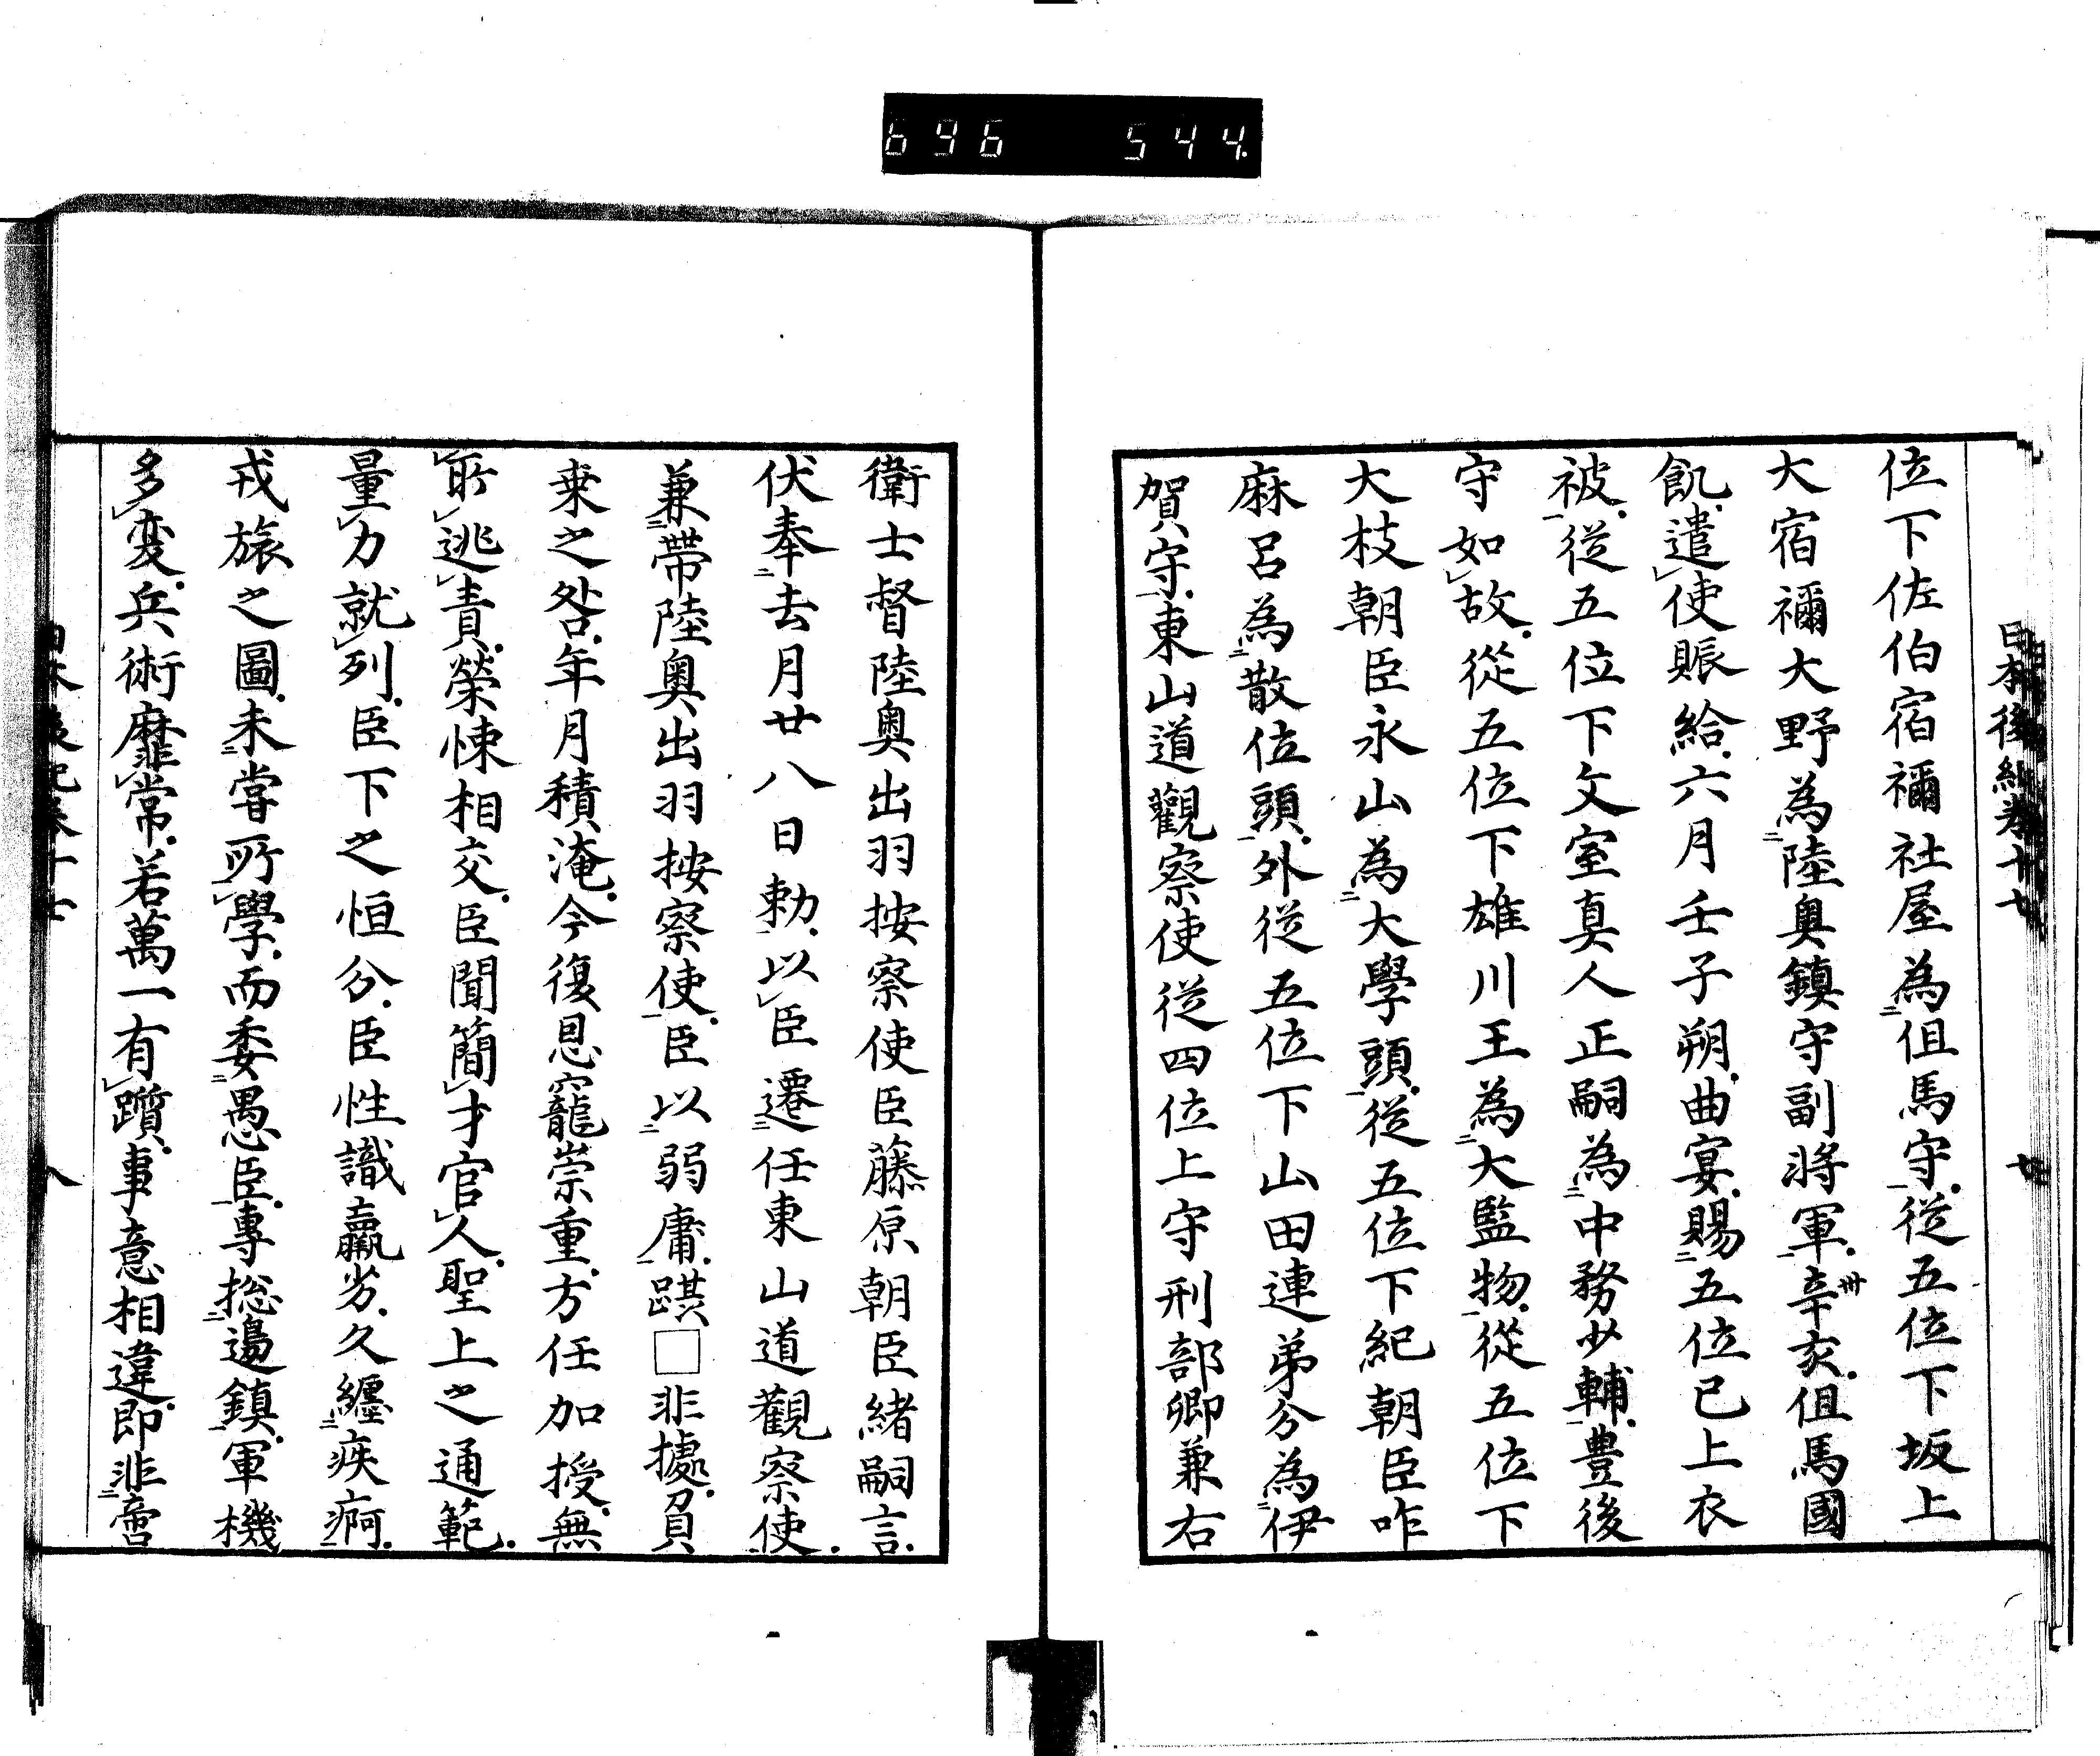 696 544.
日本後紀卷十七 廿
位下佐伯宿禰社屋為二但馬守一從五位下坂上
大宿禰大野為二陸奥鎮守副將軍一辛亥卅但馬國
飢遣レ使賑給六月壬子朔曲宴賜二五位已上衣
被一從五位下文室真人正嗣為二中務少輔一豊後
守如レ故從五位下雄川王為二大監物一從五位下
大枝朝臣永山為二大學頭一從五位下紀朝臣咋
麻呂為二散位頭一外從五位下山田連弟分為二伊
賀守一東山道觀察使從四位上守刑部卿兼右
衛士督陸奥出羽按察使臣藤原朝臣緒嗣言
伏奉二去月廿八日勅一以レ臣遷二任東山道觀察使一
兼二帶陸奥出羽按察使一臣以二弱庸一蹟□非據負
乗之咎年月積淹今復恩寵崇重方任加授無
所レ逃レ責榮悚相交臣聞簡レ才官レ人聖上之通範
量レ力就レ列臣下之恒分臣性識羸劣久纏二疾痾一
戎旅之圖未二嘗所一レ學而委二愚臣一專捴二邊鎮一軍機
多レ変兵術靡レ常若萬一有レ躓事意相違即非二啻